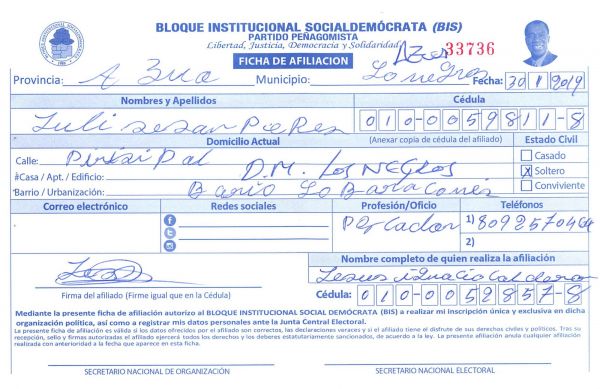 BLOQUE INSTITUCIONAL SOCIALDEMÓCRATA (BIS)
PARTIDO PEÑAGOMISTA
Libertad, Justicia, Democracia y Solidaridad
FICHA DE AFILIACION
33736
Provincia: A Zua Municipio: Lo negros Fecha: 30/1/2019
Nombres y Apellidos Cédula
Luli sesar Pieres 010-0059811-8
Domicilio Actual (Anexar copias de cédula del afiliado) Estado Civil
Calle: Pinsipal Casado
#Casa / Apt. / Edificio: D.M. Los NEgROS X Soltero
Barrio / Urbanización: Bario Lo Conviviente
Correo electrónico Redes sociales Profesión/Oficio Teléfonos
PesCador 1)
2)
Nombre completo de quien realiza la afiliación
Jesus ignacio Calderon
Firma del afiliado (Firme igual que en la Cédula) Cédula: 010-0052857-8
Mediante la presente ficha de afiliación autorizo al BLOQUE INSTITUCIONAL SOCIAL DEMÓCRATA (BIS) a realizar mi inscripción única y exclusiva en dicha
organización política, así como a registrar mis datos personales ante la Junta Central Electoral.
La presente ficha de afiliación es válida si los datos ofrecidos por el afiliado son correctos, las declaraciones veraces y si el afiliado tiene el disfrute de sus derechos civiles y políticos. Tras su
recepción, sello y firmas autorizadas el afiliado ejercerá todos los derechos y los deberes estatutariamente sancionados, de acuerdo a la ley. La presente afiliación anula cualquier afiliación
realizada con anterioridad a la fecha que aparece en esta ficha.
SECRETARIO NACIONAL DE ORGANIZACIÓN SECRETARIO NACIONAL ELECTORAL